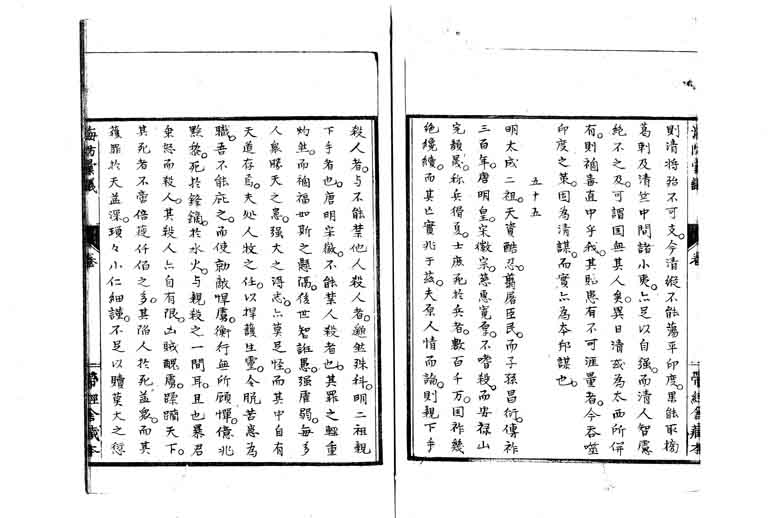 則清將殆不可支。今清縱不能蕩平印度。果能取榜
葛剌及清竺中間諸小夷。亦足以自强。而清人智慮
絶不之及。可謂國無其人矣。異日清或為太西所併
有。則禍害直中乎我。其貽患有不可涯量者。今吞噬
印度之策。固為清謀。而實亦為本邦謀也
五十五
明太成二祖。天資酷忍。翦屠臣民。而子孫昌衍。傳祚
三百年。唐明皇。宋徽宗。慈惠寬皇。不嗜殺。而安禄山
完顔愚。称兵猾夏。士庶死於兵者。數百千万。国祚幾
絶纔續。而其亡實兆于茲。夫原人情而論。則親下手
殺人者。与不能禁他人殺人者。逈然殊科。明二祖親
下手者也。唐明宋徽。不能禁人殺者也。其罪之輕重
灼然。而禍福如斯之懸隔。後世智誑愚。强虐弱。每多
人衆勝天之愚。强大之得志。亦莫足怪。而其中自有
天道存焉。夫処人牧之任。以捍護生靈。令脱苦患為
職。吾不能庇之。而使勍敵悍虜。衡行無所顧憚。億兆
黔黎。死於鋒鏑於水火。与親殺之一間耳。且也暴君
乗怒而殺人。其殺人亦自有限。凶賊醜虜蹂躙天下。
其死者不啻倍蓰仟佰之多。其陥人於死益衆。而其
獲罪於天益深。瑣々小仁細謹。不足以贖莫大之愆
海防彙議
卷
帶經舍藏本